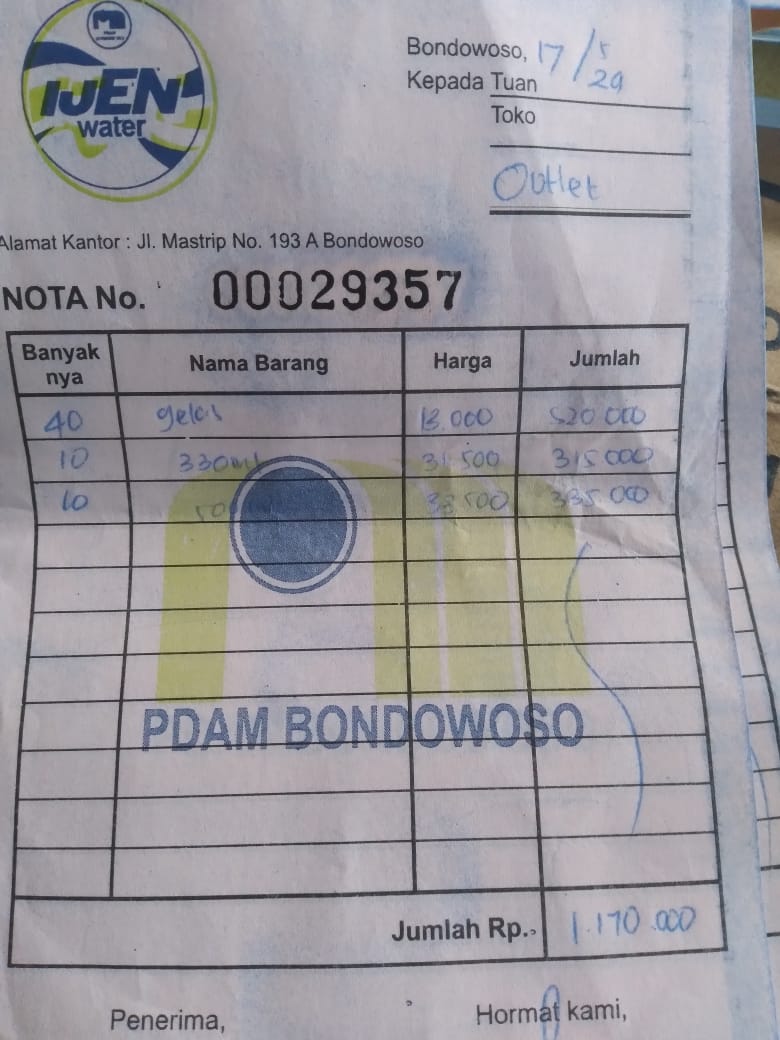 IJEN
water
Bondowoso, 17/5/29
Kepada Tuan
Toko
Outlet
Alamat Kantor : Jl. Mastrip No. 193 A Bondowoso
NOTA No. 00029357
Banyak nya Nama Barang Harga Jumlah
40 gelas 13.000 520 000
10 330ml 31.500 315 000
10 33 500 335 000
PDAM BONDOWOSO
Jumlah Rp. 1.170.000
Penerima, Hormat kami,